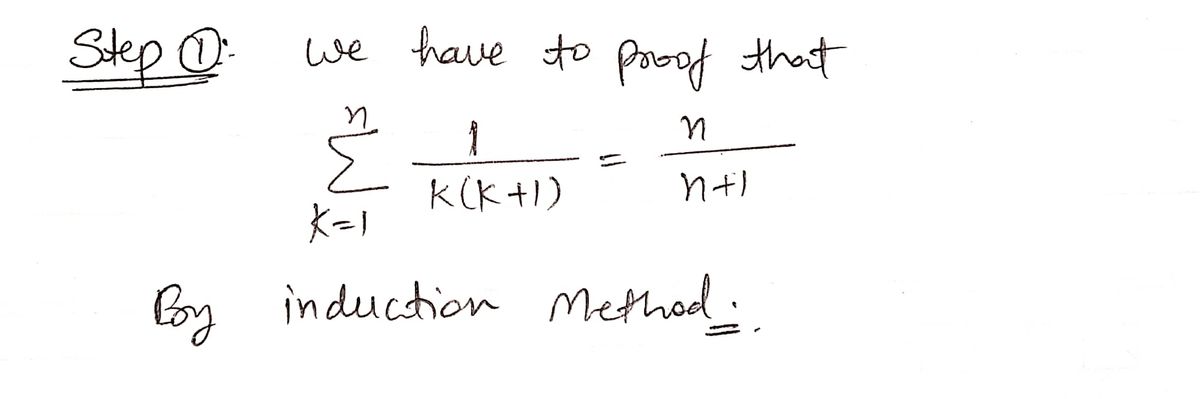 Step ①:- we have to proof that
n
∑ 1/K(K+1) = n/n+1
K=1
By induction Method:.